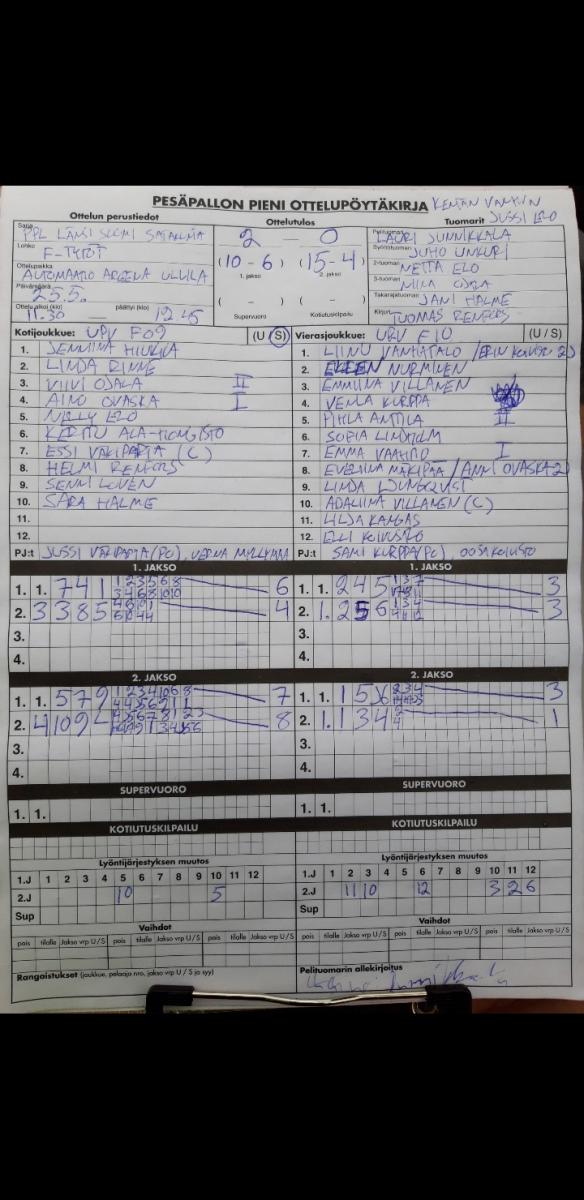 PESÄPALLON PIENI OTTELUPÖYTÄKIRJA KENTÄN VANHIN
JUSSI ELO
Ottelun perustiedot Ottelutulos Tuomarit
Sarja PPL LÄNSI SUOMI SATAKUNTA
Lohko F-TYTÖT
Ottelupaikka AUTOMAATIO AREENA ULVILA
Päivämäärä 25.5.
Ottelu alkoi (klo) 11.30 — päättyi (klo) 12.45
2 — 0
(10 - 6) (15 - 4)
1. jakso 2. jakso
( - ) ( - )
Supervuoro Kotiutuskilpailu
Pelituomari LAURI JUNNIKKALA
Syöttötuomari JUHO UNKURI
2-tuomari NETTA ELO
3-tuomari MINA OJALA
Takarajatuomari JANI HALME
Kirjuri TUOMAS RENFORS
Kotijoukkue: UPV F09 (U / S)
1. JEMMINA HIUKKA
2. LINDA RINNE
3. VIIVI OJALA II
4. AINO OVASKA I
5. NELLY ELO
6. KERTTU ALA-HONGISTO
7. ESSI VÄKIPARTA (C)
8. HELMI RENFORS
9. SENNI LOVEN
10. SARA HALME
11.
12.
PJ:t JUSSI VÄKIPARTA (PC), VEERA MYLLYMAA
Vierasjoukkue: URV F10 (U / S)
1. LIINU VANHATALO /ERIN KOIVISTO 2J
2. EEDEN NURMINEN
3. EMMIINA VILLANEN
4. VENLA KURPPA
5. PIHLA ANTTILA II
6. SOFIA LINDHOLM
7. EMMA VAAHTIO I
8. EVELIINA MÄKIPÄÄ / ANNI OVASKA 2J
9. LINDA LJUNGQVIST
10. ADALIINA VILLANEN (C)
11. LILJA KANGAS
12. ELLI KOIVISTO
PJ:t SAMI KURPPA (PC), OOSA KOIVISTO
1. JAKSO 1. JAKSO
1. 1. 7 4 1 6
2. 3 3 8 5 4
3.
4.
1. 1. 2 4 5 3
2. 1. 2 5 6 3
3.
4.
2. JAKSO 2. JAKSO
1. 1. 5 7 9 7
2. 4 10 9 4 8
3.
4.
1. 1. 1 5 6 3
2. 1. 1 3 4 1
3.
4.
SUPERVUORO SUPERVUORO
1. 1. 1. 1.
KOTIUTUSKILPAILU KOTIUTUSKILPAILU
Lyöntijärjestyksen muutos Lyöntijärjestyksen muutos
1.J 1 2 3 4 5 6 7 8 9 10 11 12
2.J 10 5
Sup
1.J 1 2 3 4 5 6 7 8 9 10 11 12
2.J 11 10 12 3 2 6
Sup
Vaihdot Vaihdot
pois tilalle Jakso vrp U / S pois tilalle Jakso vrp U / S pois tilalle Jakso vrp U / S
pois tilalle Jakso vrp U / S pois tilalle Jakso vrp U / S pois tilalle Jakso vrp U / S
Rangaistukset (joukkue, pelaaja nro, jakso vrp U / S ja syy)
Pelituomarin allekirjoitus